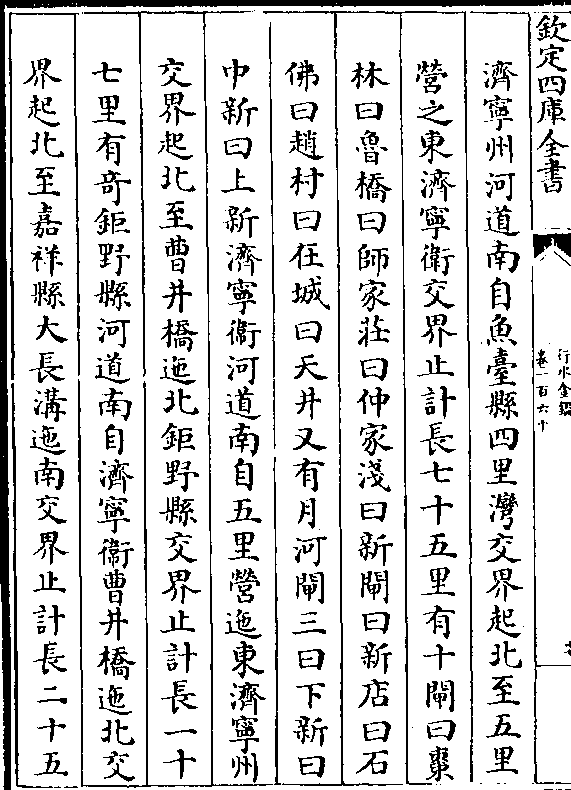 欽定四庫全書
行水金鑑
卷一百六十
濟寧州河道南自魚臺縣四里灣交界起北至五里
營之東濟寧衛交界止計長七十五里有十閘曰棗
林曰魯橋曰師家莊曰仲家淺曰新閘曰新店曰石
佛曰趙村曰任城曰天井又有月河閘三曰下新曰
中新曰上新濟寧衛河道南自五里營迤東濟寧州
交界起北至曹井橋迤北鉅野縣交界止計長一十
七里有奇鉅野縣河道南自濟寧衛曹井橋迤北交
界起北至嘉祥縣大長溝迤南交界止計長二十五